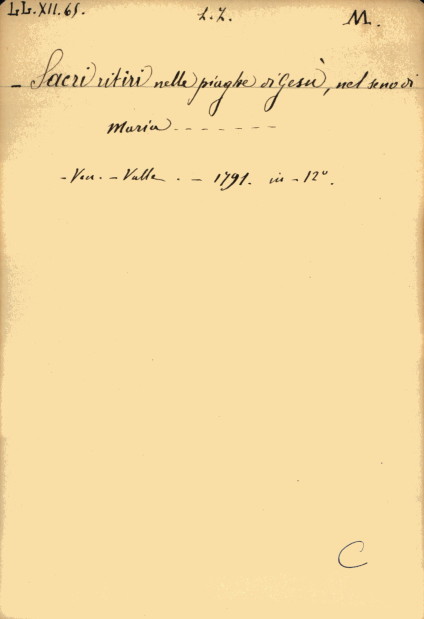 LL.XII.65. L.Z. M.
- Sacri ritiri nelle piaghe di Gesù, nel seno di
Maria - - - - - - -
- Ven. - Valle - - 1791. in - 12°.
C